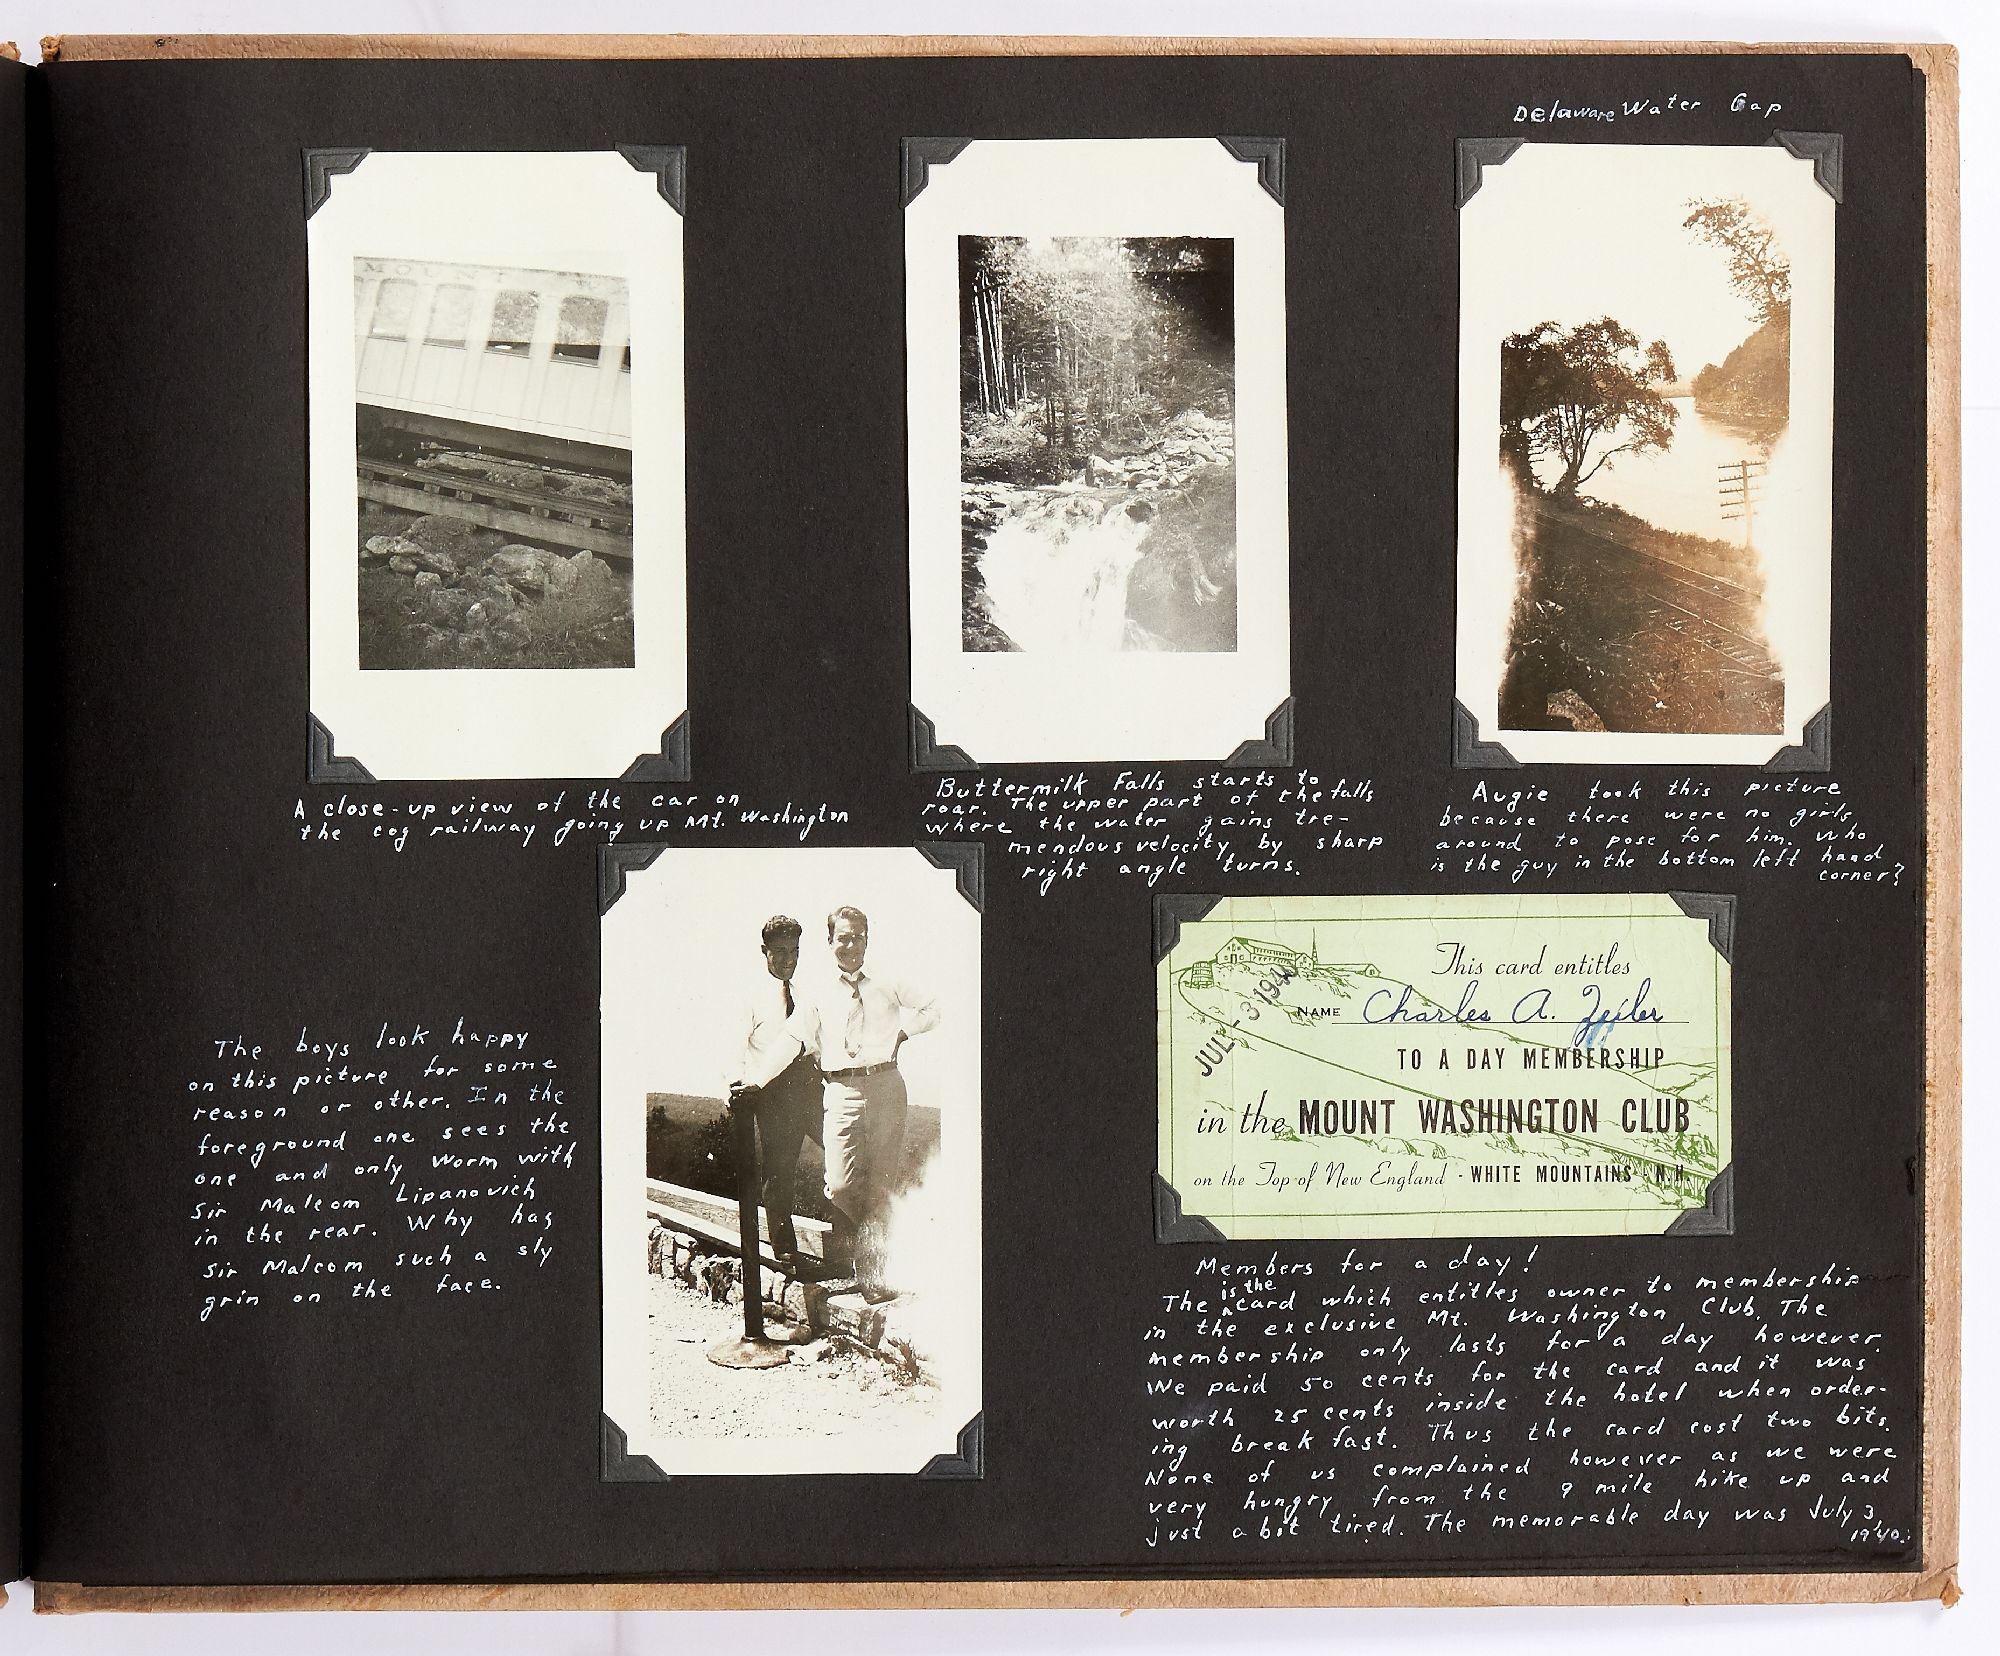 Delaware Water Gap
MOUNT
A close-up view of the car on
the cog railway going up Mt. Washington
Buttermilk Falls starts to
roar. The upper part of the falls
where the water gains tre-
mendous velocity by sharp
right angle turns.
Augie took this picture
because there were no girls
around to pose for him. Who
is the guy in the bottom left hand
corner?
The boys look happy
on this picture for some
reason or other. In the
foreground one sees the
one and only Worm with
Sir Malcom Lipanovich
in the rear. Why has
Sir Malcom such a sly
grin on the face.
This card entitles
NAME Charles A.
JUL -3 1940
TO A DAY MEMBERSHIP
in the MOUNT WASHINGTON CLUB
on the Top of New England - WHITE MOUNTAINS - N.H.
Members for a day!
The is the card which entitles owner to membership
in the exclusive Mt. Washington Club. The
membership only lasts for a day however.
We paid 50 cents for the card and it was
worth 25 cents inside the hotel when order-
ing breakfast. Thus the card cost two bits.
None of us complained however as we were
very hungry from the 9 mile hike up and
just a bit tired. The memorable day was July 3,
1940.